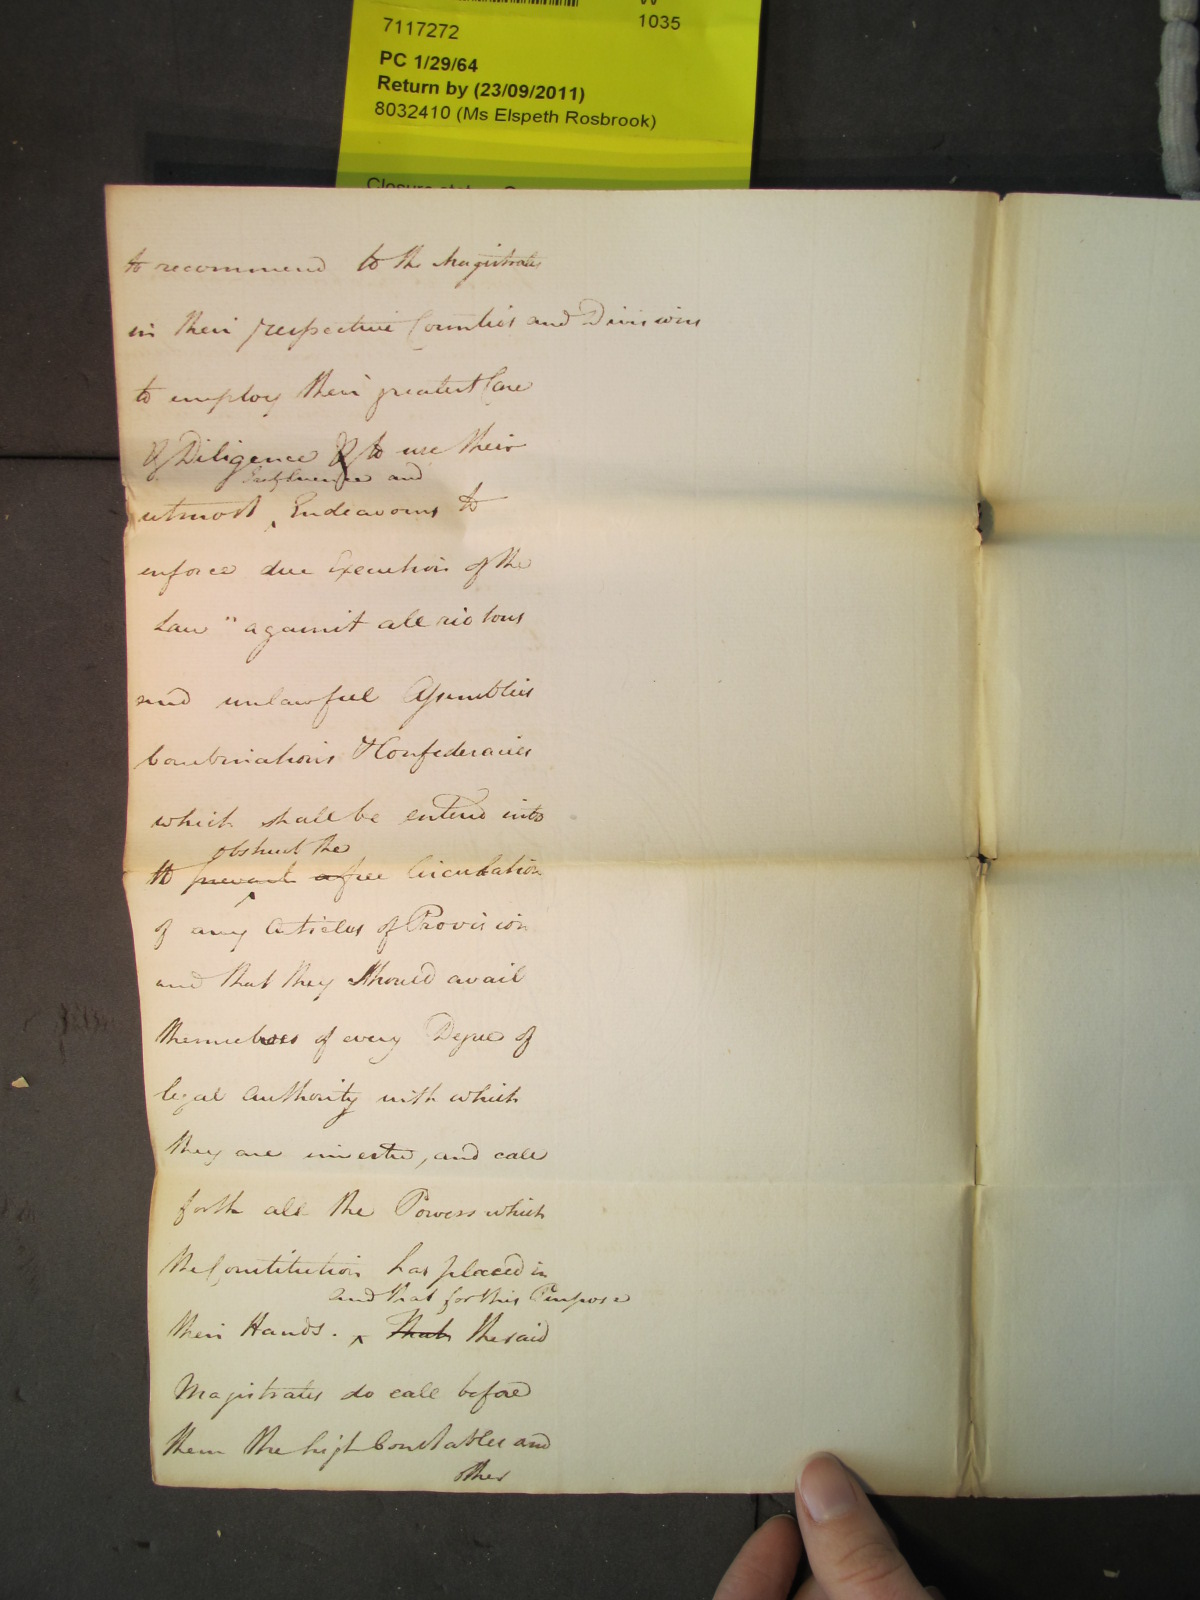 1035
7117272
PC 1/29/64
Return by (23/09/2011)
8032410 (Ms Elspeth Rosbrook)
to recommend to the Magistrates
in their respective Counties and Divisions
to employ their greatest Care
& Diligence & to use their
Influence and
utmost ‸ Endeavours to
enforce due Execution of the
Law" against all riotous
and unlawful Assemblies
Combinations & Confederacies
which shall be entered into
obstruct the
to prevent a free Circulation
of any Articles of Provision
and that they should avail
themselves of every Degree of
legal Authority with which
they are invested, and call
forth all the Powers which
the Constitution has placed in
and that for this Purpose
their Hands. ‸ That the said
Magistrates do call before
them the high Constables and
other